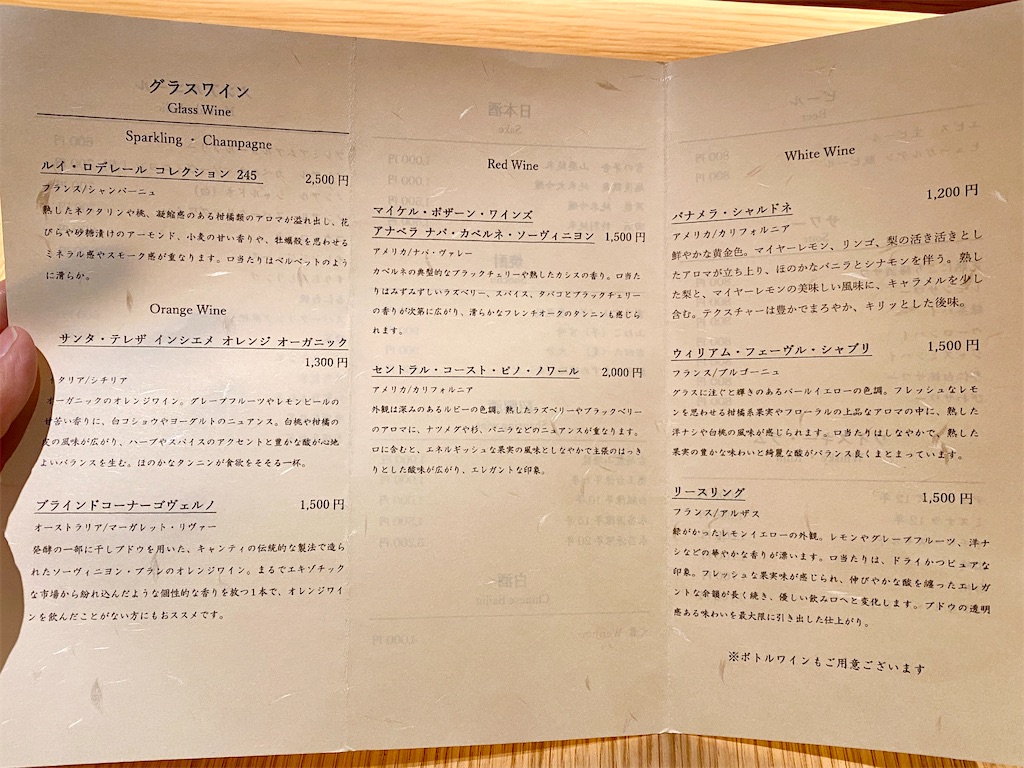 グラスワイン
Glass Wine
Sparkling ・ Champagne
ルイ・ロデレール コレクション 245 2,500円
フランス/シャンパーニュ
熟したネクタリンや桃、凝縮感のある柑橘類のアロマが溢れ出し、花
びらや砂糖漬けのアーモンド、小麦の甘い香りや、牡蠣殻を思わせる
ミネラル感やスモーク感が重なります。口当たりはベルベットのよう
に滑らか。
Orange Wine
サンタ・テレザ インシエメ オレンジ オーガニック
1,300円
イタリア/シチリア
オーガニックのオレンジワイン。グレープフルーツやレモンピールの
甘苦い香りに、白コショウやヨーグルトのニュアンス。白桃や柑橘の
皮の風味が広がり、ハーブやスパイスのアクセントと豊かな酸が心地
よいバランスを生む。ほのかなタンニンが食欲をそそる一杯。
ブラインドコーナーゴヴェルノ 1,500円
オーストラリア/マーガレット・リヴァー
発酵の一部に干しブドウを用いた、キャンティの伝統的な製法で造ら
れたソーヴィニヨン・ブランのオレンジワイン。まるでエキゾチック
な市場から紛れ込んだような個性的な香りを放つ1本で、オレンジワイ
ンを飲んだことがない方にもおススメです。
Red Wine
マイケル・ポザーン・ワインズ
アナベラ ナパ・カベルネ・ソーヴィニヨン 1,500円
アメリカ/ナパ・ヴァレー
カベルネの典型的なブラックチェリーや熟したカシスの香り。口当た
りはみずみずしいラズベリー、スパイス、タバコとブラックチェリー
の香りが次第に広がり、滑らかなフレンチオークのタンニンも感じら
れます。
セントラル・コースト・ピノ・ノワール 2,000円
アメリカ/カリフォルニア
外観は深みのあるルビーの色調。熟したラズベリーやブラックベリー
のアロマに、ナツメグや杉、バニラなどのニュアンスが重なります。
口に含むと、エネルギッシュな果実の風味としなやかで主張のはっき
りとした酸味が広がり、エレガントな印象。
White Wine
1,200円
パナメラ・シャルドネ
アメリカ/カリフォルニア
鮮やかな黄金色。マイヤーレモン、リンゴ、梨の活き活きとし
たアロマが立ち上り、ほのかなバニラとシナモンを伴う。熟し
た梨と、マイヤーレモンの美味しい風味に、キャラメルを少し
含む。テクスチャーは豊かでまろやか、キリッとした後味。
ウィリアム・フェーヴル・シャブリ 1,500円
フランス/ブルゴーニュ
グラスに注ぐと輝きのあるパールイエローの色調。フレッシュなレモ
ンを思わせる柑橘系果実やフローラルの上品なアロマの中に、熟した
洋ナシや白桃の風味が感じられます。口当たりはしなやかで、熟した
果実の豊かな味わいと綺麗な酸がバランス良くまとまっています。
リースリング 1,500円
フランス/アルザス
緑がかったレモンイエローの外観。レモンやグレープフルーツ、洋ナ
シなどの華やかな香りが漂います。口当たりは、ドライかつピュアな
印象。フレッシュな果実味が感じられ、伸びやかな酸を纏ったエレガ
ントな余韻が長く続き、優しい飲み口へと変化します。ブドウの透明
感ある味わいを最大限に引き出した仕上がり。
※ボトルワインもご用意ございます